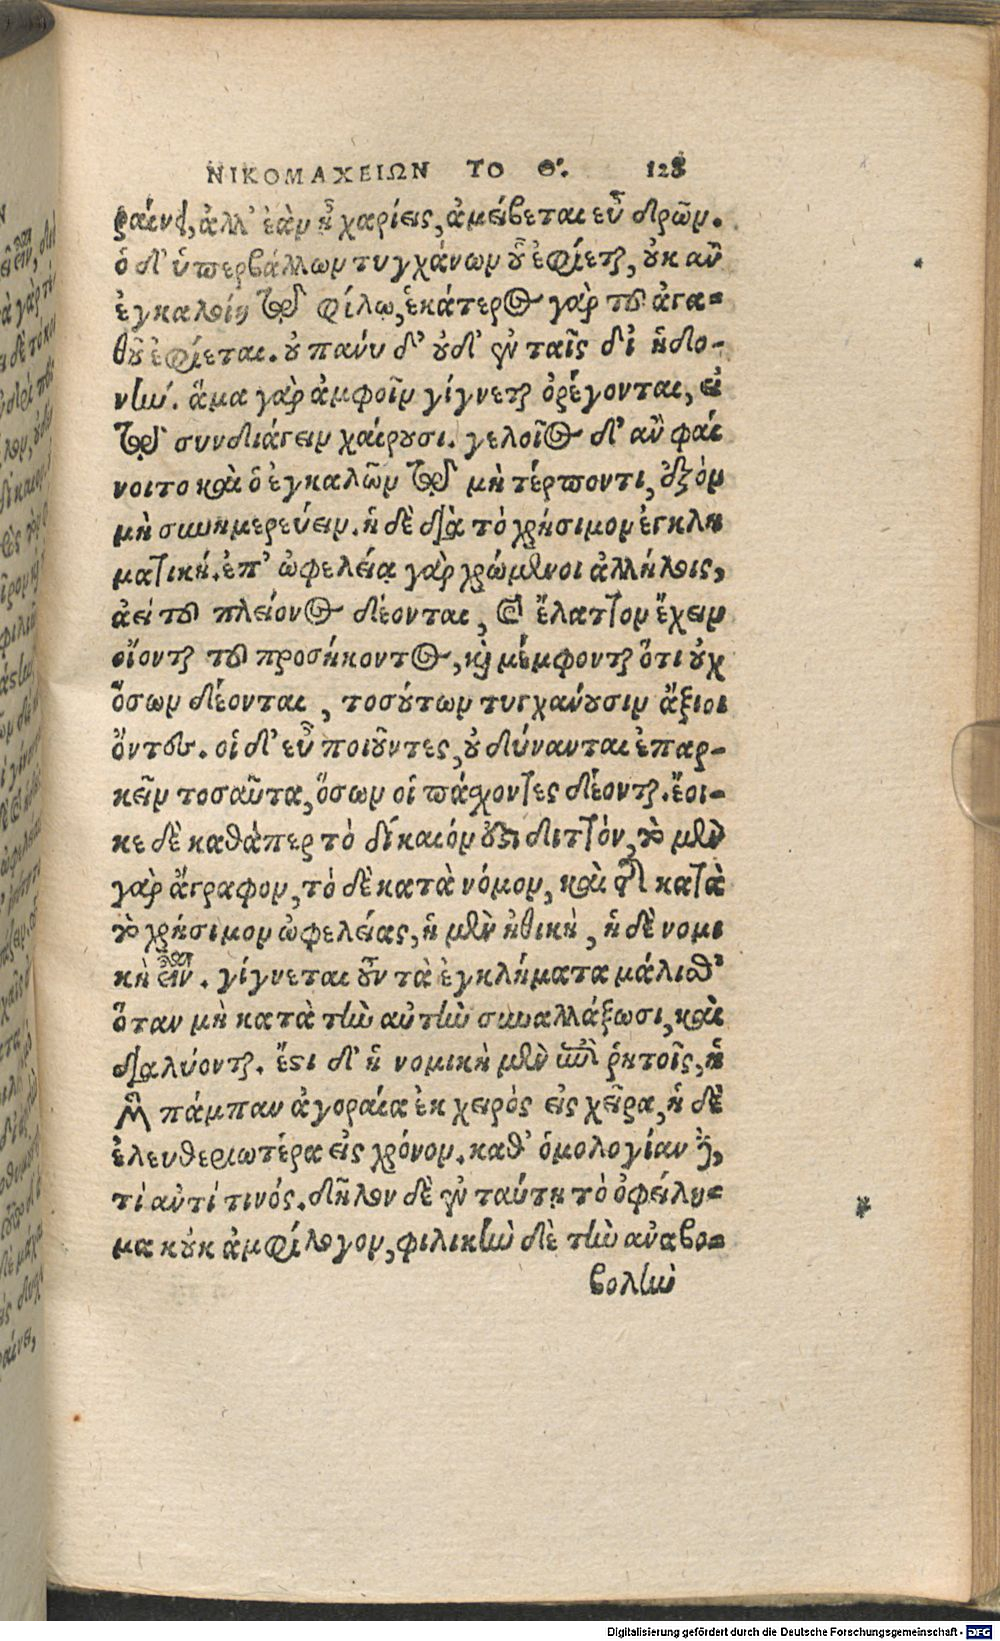 ΝΙΚΟΜΑΧΕΙΩΝ ΤΟ Θ. 128
ραίνει, ἀλλ' ἐὰν ᾖ χαρίεις, ἀμείβεται εὖ δρῶν.
ὁ δ' ὑπερβάλλων τυγχάνων οὗ ἐφίεται, οὐκ ἂν
ἐγκαλοίη τῷ φίλῳ, ἑκάτερος γὰρ τοῦ ἀγα-
θοῦ ἐφίεται. οὐ πάνυ δ' οὐδ' ἐν ταῖς δι' ἡδο-
νήν. ἅμα γὰρ ἀμφοῖν γίγνεται οὗ ὀρέγονται, εἰ
τῷ συνδιάγειν χαίρουσι. γελοῖος δ' ἂν φαί
νοιτο καὶ ὁ ἐγκαλῶν τῷ μὴ τέρποντι, ἐξὸν
μὴ συνημερεύειν. ἡ δὲ διὰ τὸ χρήσιμον ἐγκλη
ματική. ἐπ' ὠφελείᾳ γὰρ χρώμενοι ἀλλήλοις,
ἀεὶ τοῦ πλείονος δέονται, καὶ ἔλαττον ἔχειν
οἴονται τοῦ προσήκοντος, καὶ μέμφονται ὅτι οὐχ
ὅσων δέονται, τοσούτων τυγχάνουσιν ἄξιοι
ὄντες. οἱ δ' εὖ ποιοῦντες, οὐ δύνανται ἐπαρ-
κεῖν τοσαῦτα, ὅσων οἱ πάσχοντες δέονται. ἔοι-
κε δὲ καθάπερ τὸ δίκαιόν ἐστι διττόν, τὸ μὲν
γὰρ ἄγραφον, τὸ δὲ κατὰ νόμον, καὶ τῆς κατὰ
τὸ χρήσιμον ὠφελείας, ἡ μὲν ἠθική, ἡ δὲ νομι
κὴ εἶναι. γίγνεται οὖν τὰ ἐγκλήματα μάλισθ'
ὅταν μὴ κατὰ τὴν αὐτὴν συναλλάξωσι, καὶ
διαλύονται. ἔστι δ' ἡ νομικὴ μὲν ἐπὶ ῥητοῖς, ἡ
μὲν πάμπαν ἀγοραία ἐκ χειρὸς εἰς χεῖρα, ἡ δὲ
ἐλευθεριωτέρα εἰς χρόνον. καθ' ὁμολογίαν δὲ,
τί ἀντί τινός. δῆλον δὲ ἐν ταύτῃ τὸ ὀφείλη-
μα κοὐκ ἀμφίλογον, φιλικὴν δὲ τὴν ἀναβο-
βολὴν
Digitalisierung gefördert durch die Deutsche Forschungsgemeinschaft - DFG